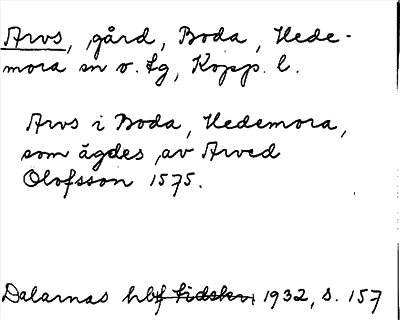 Arvs, gård, Boda, Hede-
mora sn o. tg, Kopp. l.
Arvs i Boda, Hedemora,
som ägdes av Arved
Olofsson 1575.
Dalarnas hbf tidskr. 1932, s. 157